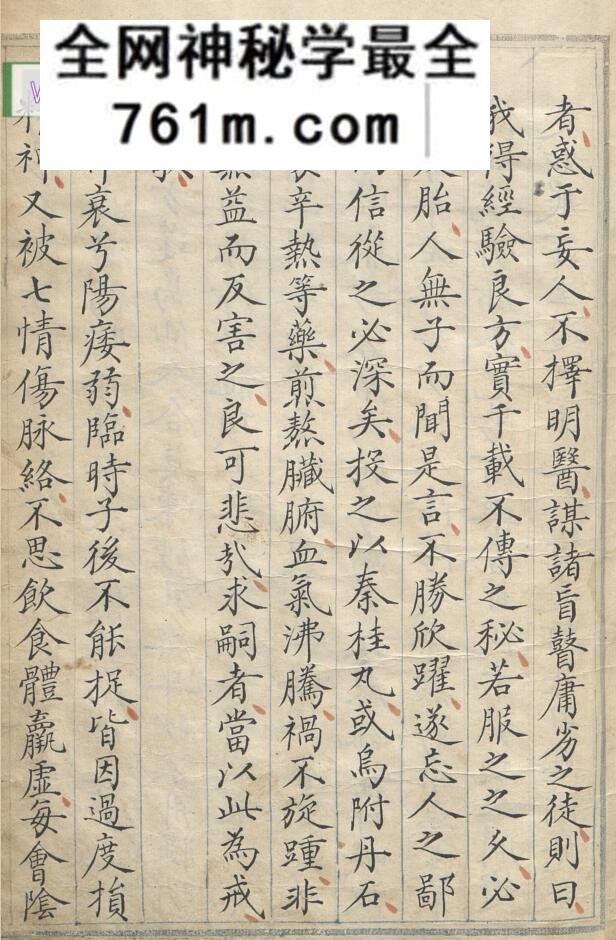 全网神秘学最全
761m.com
者惑于妄人不擇明醫謀諸盲瞽庸劣之徒則曰
我得經驗良方實千載不傳之秘若服之之久必
胎人無子而聞是言不勝欣躍遂忘人之鄙
信從之必深矣投之以秦桂丸或烏附丹石
辛熱等藥煎熬臟腑血氣沸騰禍不旋踵非
無益而反害之良可悲哉求嗣者當以此為戒
衰兮陽痿弱臨時子後不能捉皆因過度損
神又被七情傷脉絡不思飲食體羸虛每會陰